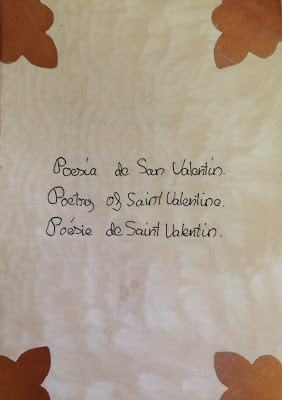 Poesía de San Valentín.
Poetry of Saint Valentine.
Poésie de Saint Valentin.